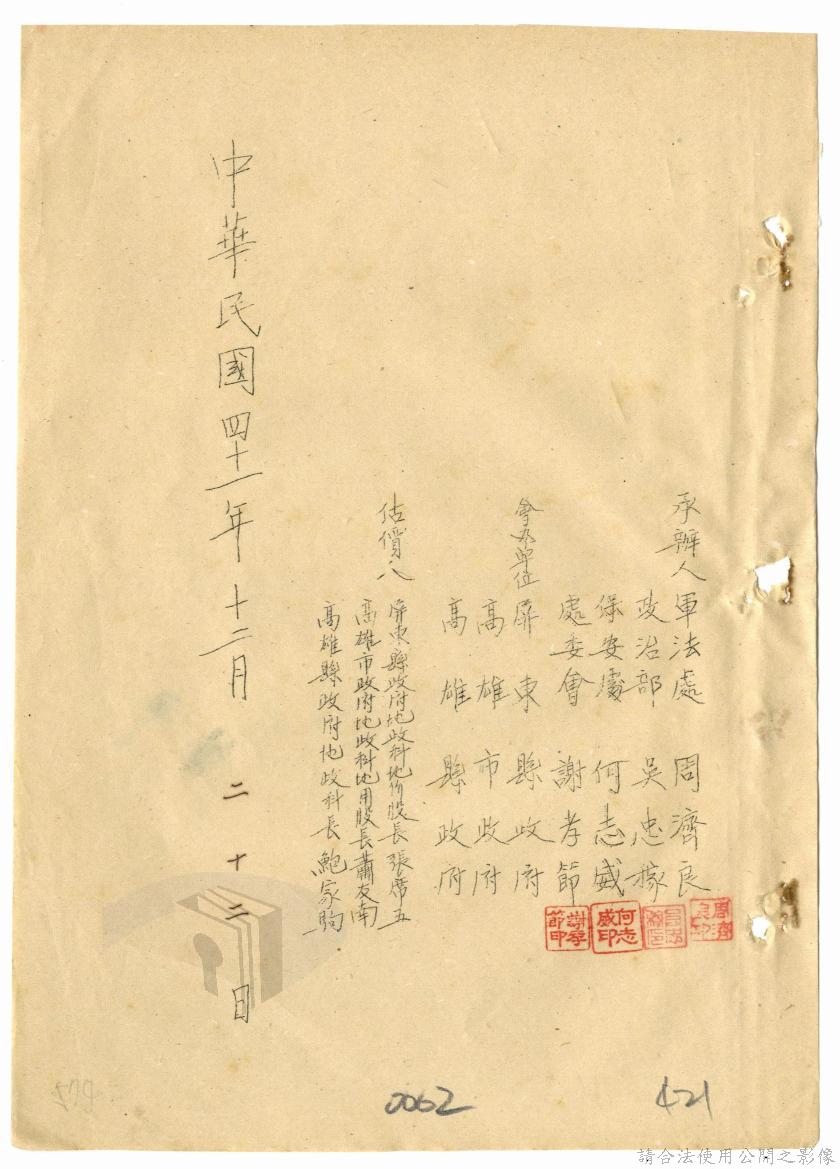 承辦人 軍法處 周濟良
政治部 吳忠
保安處 何志威
處委會 謝孝節
會办單位 屏東縣政府
高雄市政府
高雄縣政府
估價人 屏東縣政府地政科地价股長張席五
高雄市政府地政科地用股長蕭友南
高雄縣政府地政科長鮑家駒
中華民國四十一年十二月二十二日
周濟良印
何志威印
謝孝節印
0062
421
請合法使用公開之影像